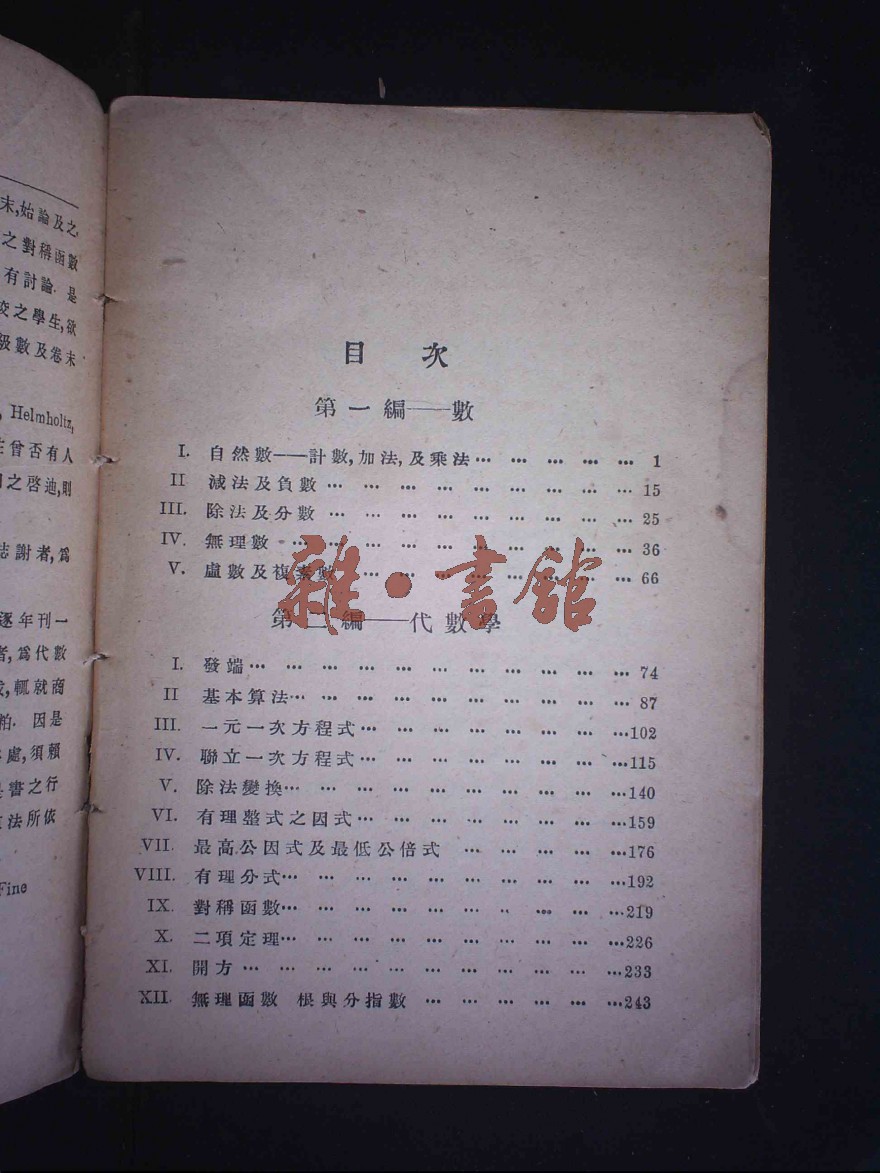 末,始論及之.
之對稱函數
有討論. 是
校之學生,欲
級數及卷末
, Helmholtz,
曾否有人
之啓迪,則
誌謝者,爲
逐年刊一
者,爲代數
輒就商
因是
處,須賴
書之行
法所依
Fine
目 次
第一編——數
I. 自然數——計數,加法,及乘法 … … … … … 1
II 減法及負數 … … … … … … … … … 15
III. 除法及分數 … … … … … … … … … 25
IV. 無理數 … … … … … … … … … … 36
V. 虛數及複素數 … … … … … … … … 66
雜·書館
第二編——代數學
I. 發端 … … … … … … … … … … … 74
II 基本算法 … … … … … … … … … … 87
III. 一元一次方程式 … … … … … … … …102
IV. 聯立一次方程式 … … … … … … … …115
V. 除法變換 … … … … … … … … … …140
VI. 有理整式之因式 … … … … … … … …159
VII. 最高公因式及最低公倍式 … … … … …176
VIII. 有理分式 … … … … … … … … … …192
IX. 對稱函數 … … … … … … … … … …219
X. 二項定理 … … … … … … … … … …226
XI. 開方 … … … … … … … … … … …233
XII. 無理函數 根與分指數 … … … … … …243